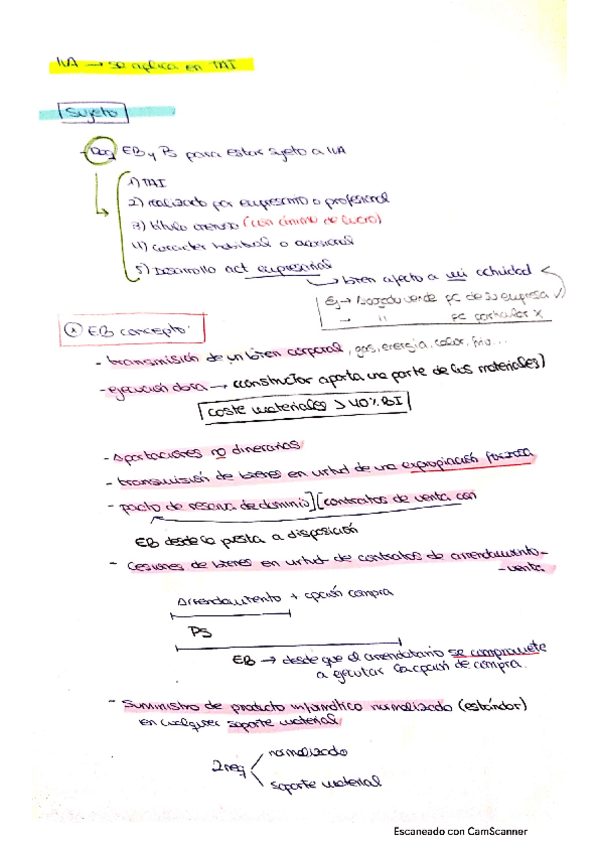 IVA → se aplica en TAI
Sujeto
- Req EB y PS para estar sujeto a IVA
1) TAI
2) realizado por empresario o profesional
3) título oneroso (con ánimo de lucro)
4) carácter habitual o ocasional
5) Desarrollo act empresarial
→ bien afecto a mi actividad
Ej → abogado vende PC de su empresa ✓
→ " PC particular X
A EB concepto:
- transmisión de un bien corporal, gas, energía, calor, frío...
- ejecución obra → (constructor aporta una parte de los materiales)
coste materiales > 40% BI
- Aportaciones no dinerarias
- transmisión de bienes en virtud de una expropiación forzosa
- pacto de reserva de dominio] [contratos de venta con
EB desde la puesta a disposición
- Cesiones de bienes en virtud de contratos de arrendamiento-
-venta
Arrendamiento + opción compra
PS
EB → desde que el arrendatario se compromete
a ejecutar la opción de compra.
- Suministro de producto informático normalizado (estándar)
en cualquier soporte material
2 req
normalizado
soporte material
Escaneado con CamScanner